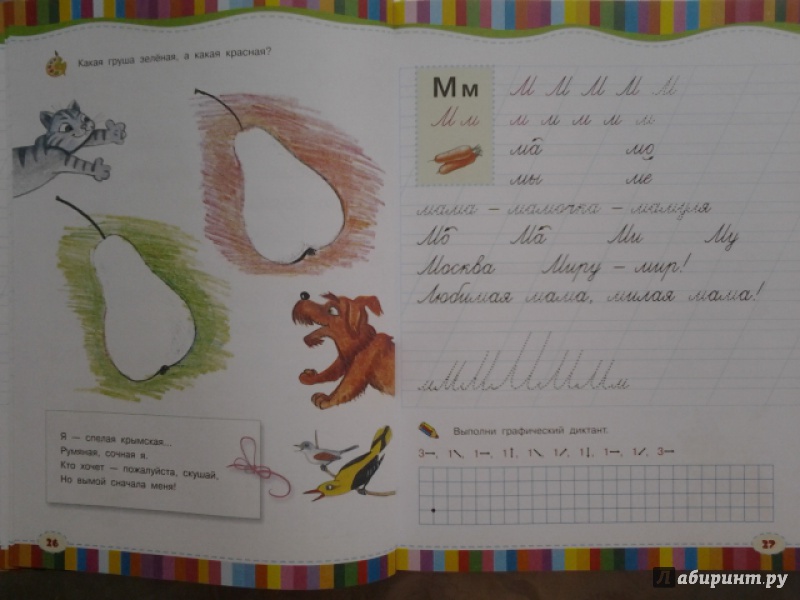 Какая груша зелёная, а какая красная?
Я — спелая крымская...
Румяная, сочная я.
Кто хочет — пожалуйста, скушай,
Но вымой сначала меня!
26
М м М М М М М
М м м м м м м
ма мо
мы ме
мама – мамочка – мамуля
Мо Ма Ми Му
Москва Миру – мир!
Любимая мама, милая мама!
мММММММм
Выполни графический диктант.
3→, 1↘, 1→, 1↕, 1↘, 1↗, 1↕, 1→, 1↙, 3→
27
Лабиринт.ру